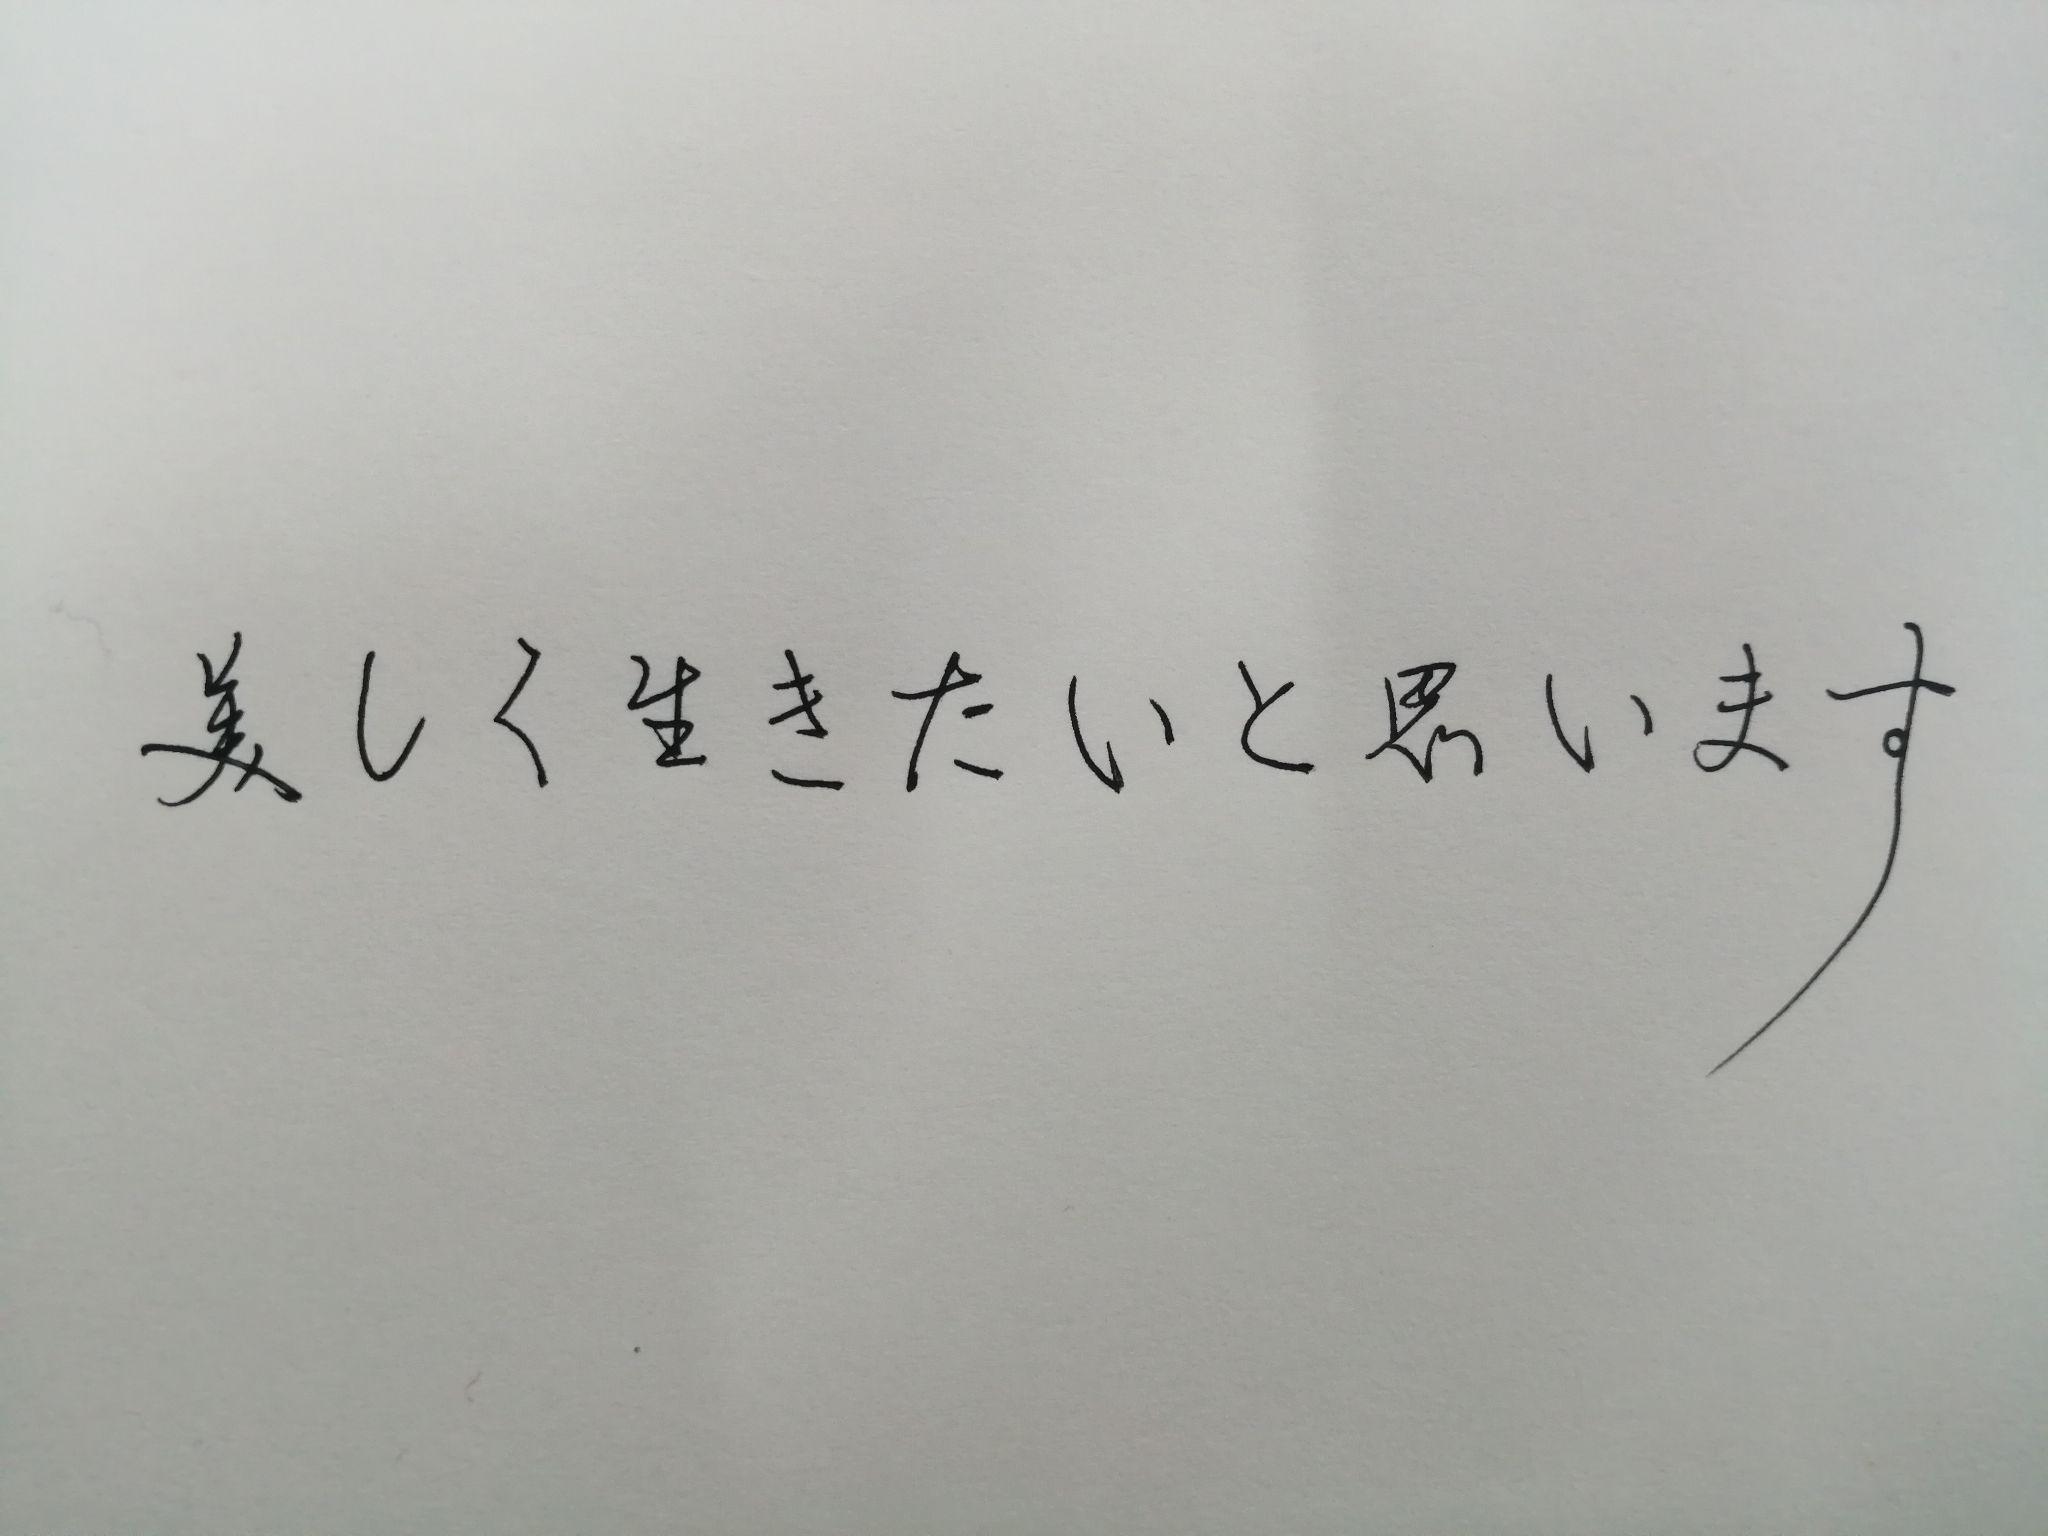 美しく生きたいと思います